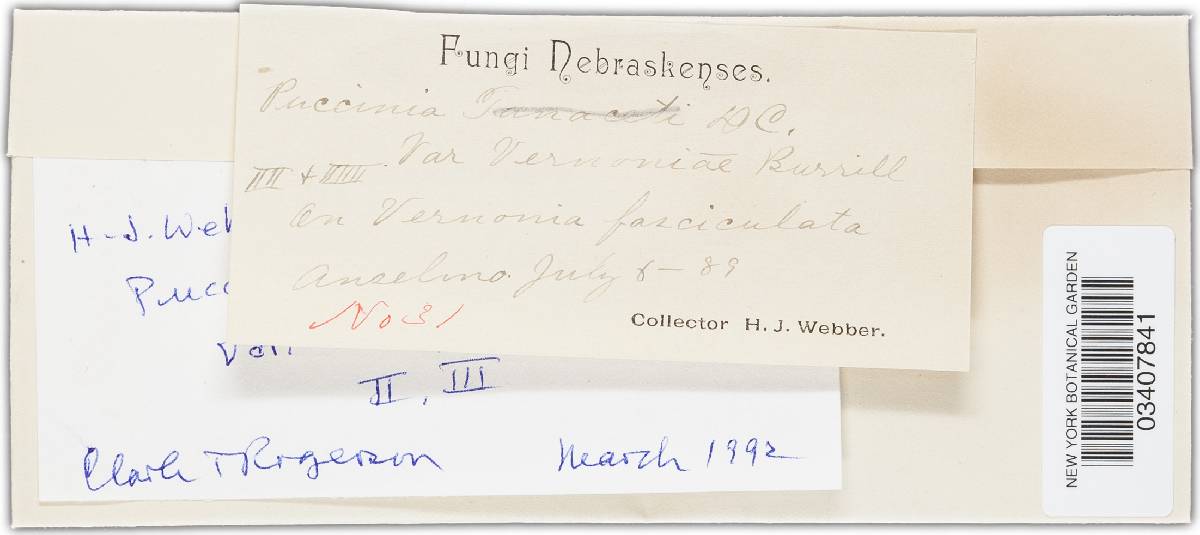 Fungi Nebraskenses.
Puccinia Tanaceti DC.
Var Vernoniae Burrill
III + IIII
On Vernonia fasciculata
Anselmo. July 8 - 89
No 31
Collector H. J. Webber.
H. J. Web
Pucc
Von
II, III
Clark T Rogerson March 1992
NEW YORK BOTANICAL GARDEN
03407841